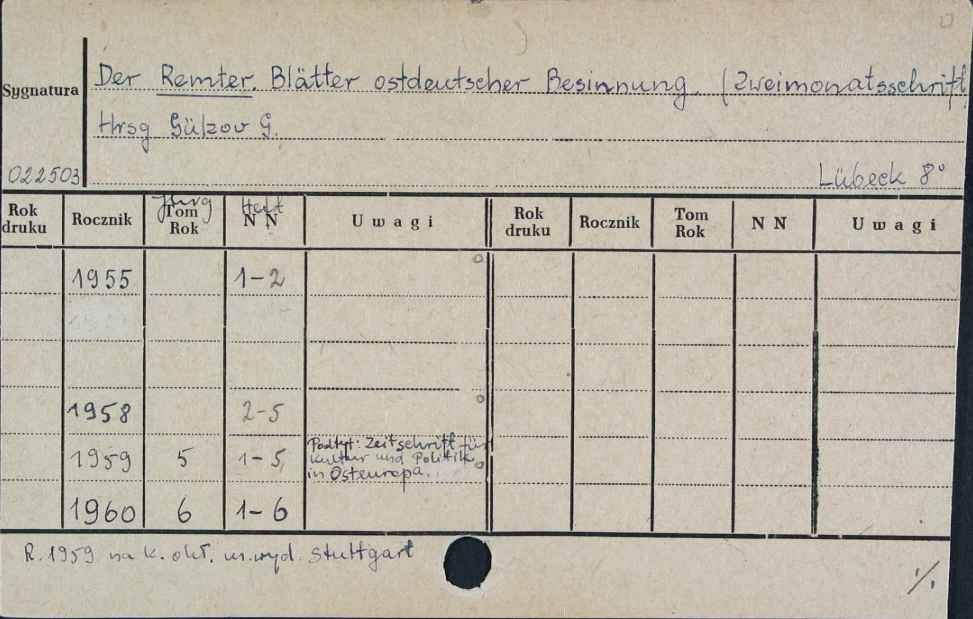 Sygnatura
Der Remter. Blätter ostdeutscher Besinnung. (Zweimonatsschrift)
Hrsg Gülzow G.
022503
Lübeck 8°
Rok druku Rocznik Jhrg Tom Rok Heft N N Uwagi Rok druku Rocznik Tom Rok N N Uwagi
1955 1-2
1958 2-5
1959 5 1-5 Podtyt: Zeitschrift für
Kultur und Politik
in Osteuropa.
1960 6 1-6
R. 1959 na k. okł. m. wyd. Stuttgart